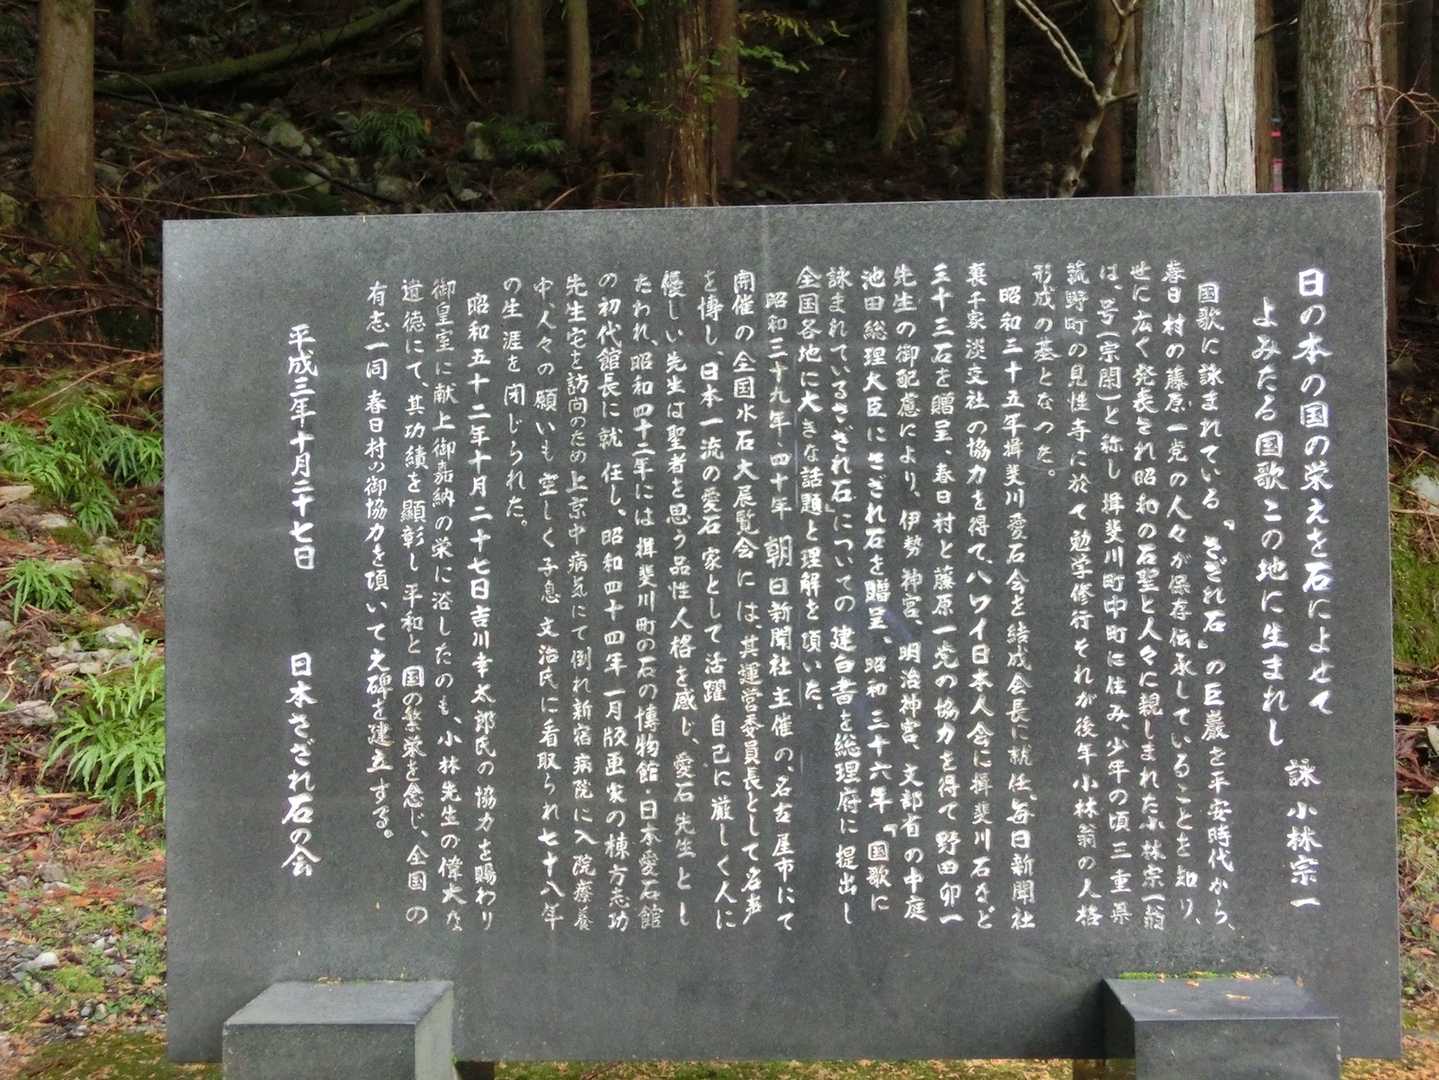 日の本の国の栄えを石によせて
よみたる国歌この地に生まれし　詠 小林宗一
国歌に詠まれている『さざれ石』の巨巌を平安時代から、
春日村の藤原一党の人々が保存伝承していることを知り、
世に広く発表され昭和の石聖と人々に親しまれた小林宗一翁
は、号(宗閑)と称し揖斐川町中町に住み、少年の頃三重県
菰野町の見性寺に於て勉学修行それが後年小林翁の人格
形成の基となった。
昭和三十五年揖斐川愛石会を結成会長に就任、毎日新聞社
裏千家淡交社の協力を得て、ハワイ日本人会に揖斐川石など
三十三石を贈呈、春日村と藤原一党の協力を得て野田卯一
先生の御配慮により、伊勢神宮、明治神宮、文部省の中庭
池田総理大臣にさざれ石を贈呈、昭和三十六年『国歌に
詠まれているさざれ石』についての建白書を総理府に提出し
全国各地に大きな話題と理解を頂いた。
昭和三十九年・四十年朝日新聞社主催の、名古屋市にて
開催の全国水石大展覧会には、其運営委員長として名声
を博し、日本一流の愛石家として活躍自己に厳しく人に
優しい先生は聖者を思う品性人格を感じ、愛石先生とし
たわれ、昭和四十二年には揖斐川町の石の博物館・日本愛石館
の初代館長に就任し、昭和四十四年一月版画家の棟方志功
先生宅を訪問のため上京中病気にて倒れ新宿病院に入院療養
中、人々の願いも空しく子息文治氏に看取られ七十八年
の生涯を閉じられた。
昭和五十二年十月二十七日吉川幸太郎氏の協力を賜わり
御皇室に献上御嘉納の栄に浴したのも、小林先生の偉大な
道徳にて、其功績を顕彰し平和と国の繁栄を念じ、全国の
有志一同春日村の御協力を頂いて文碑を建立する。
平成三年十月二十七日　日本さざれ石の会